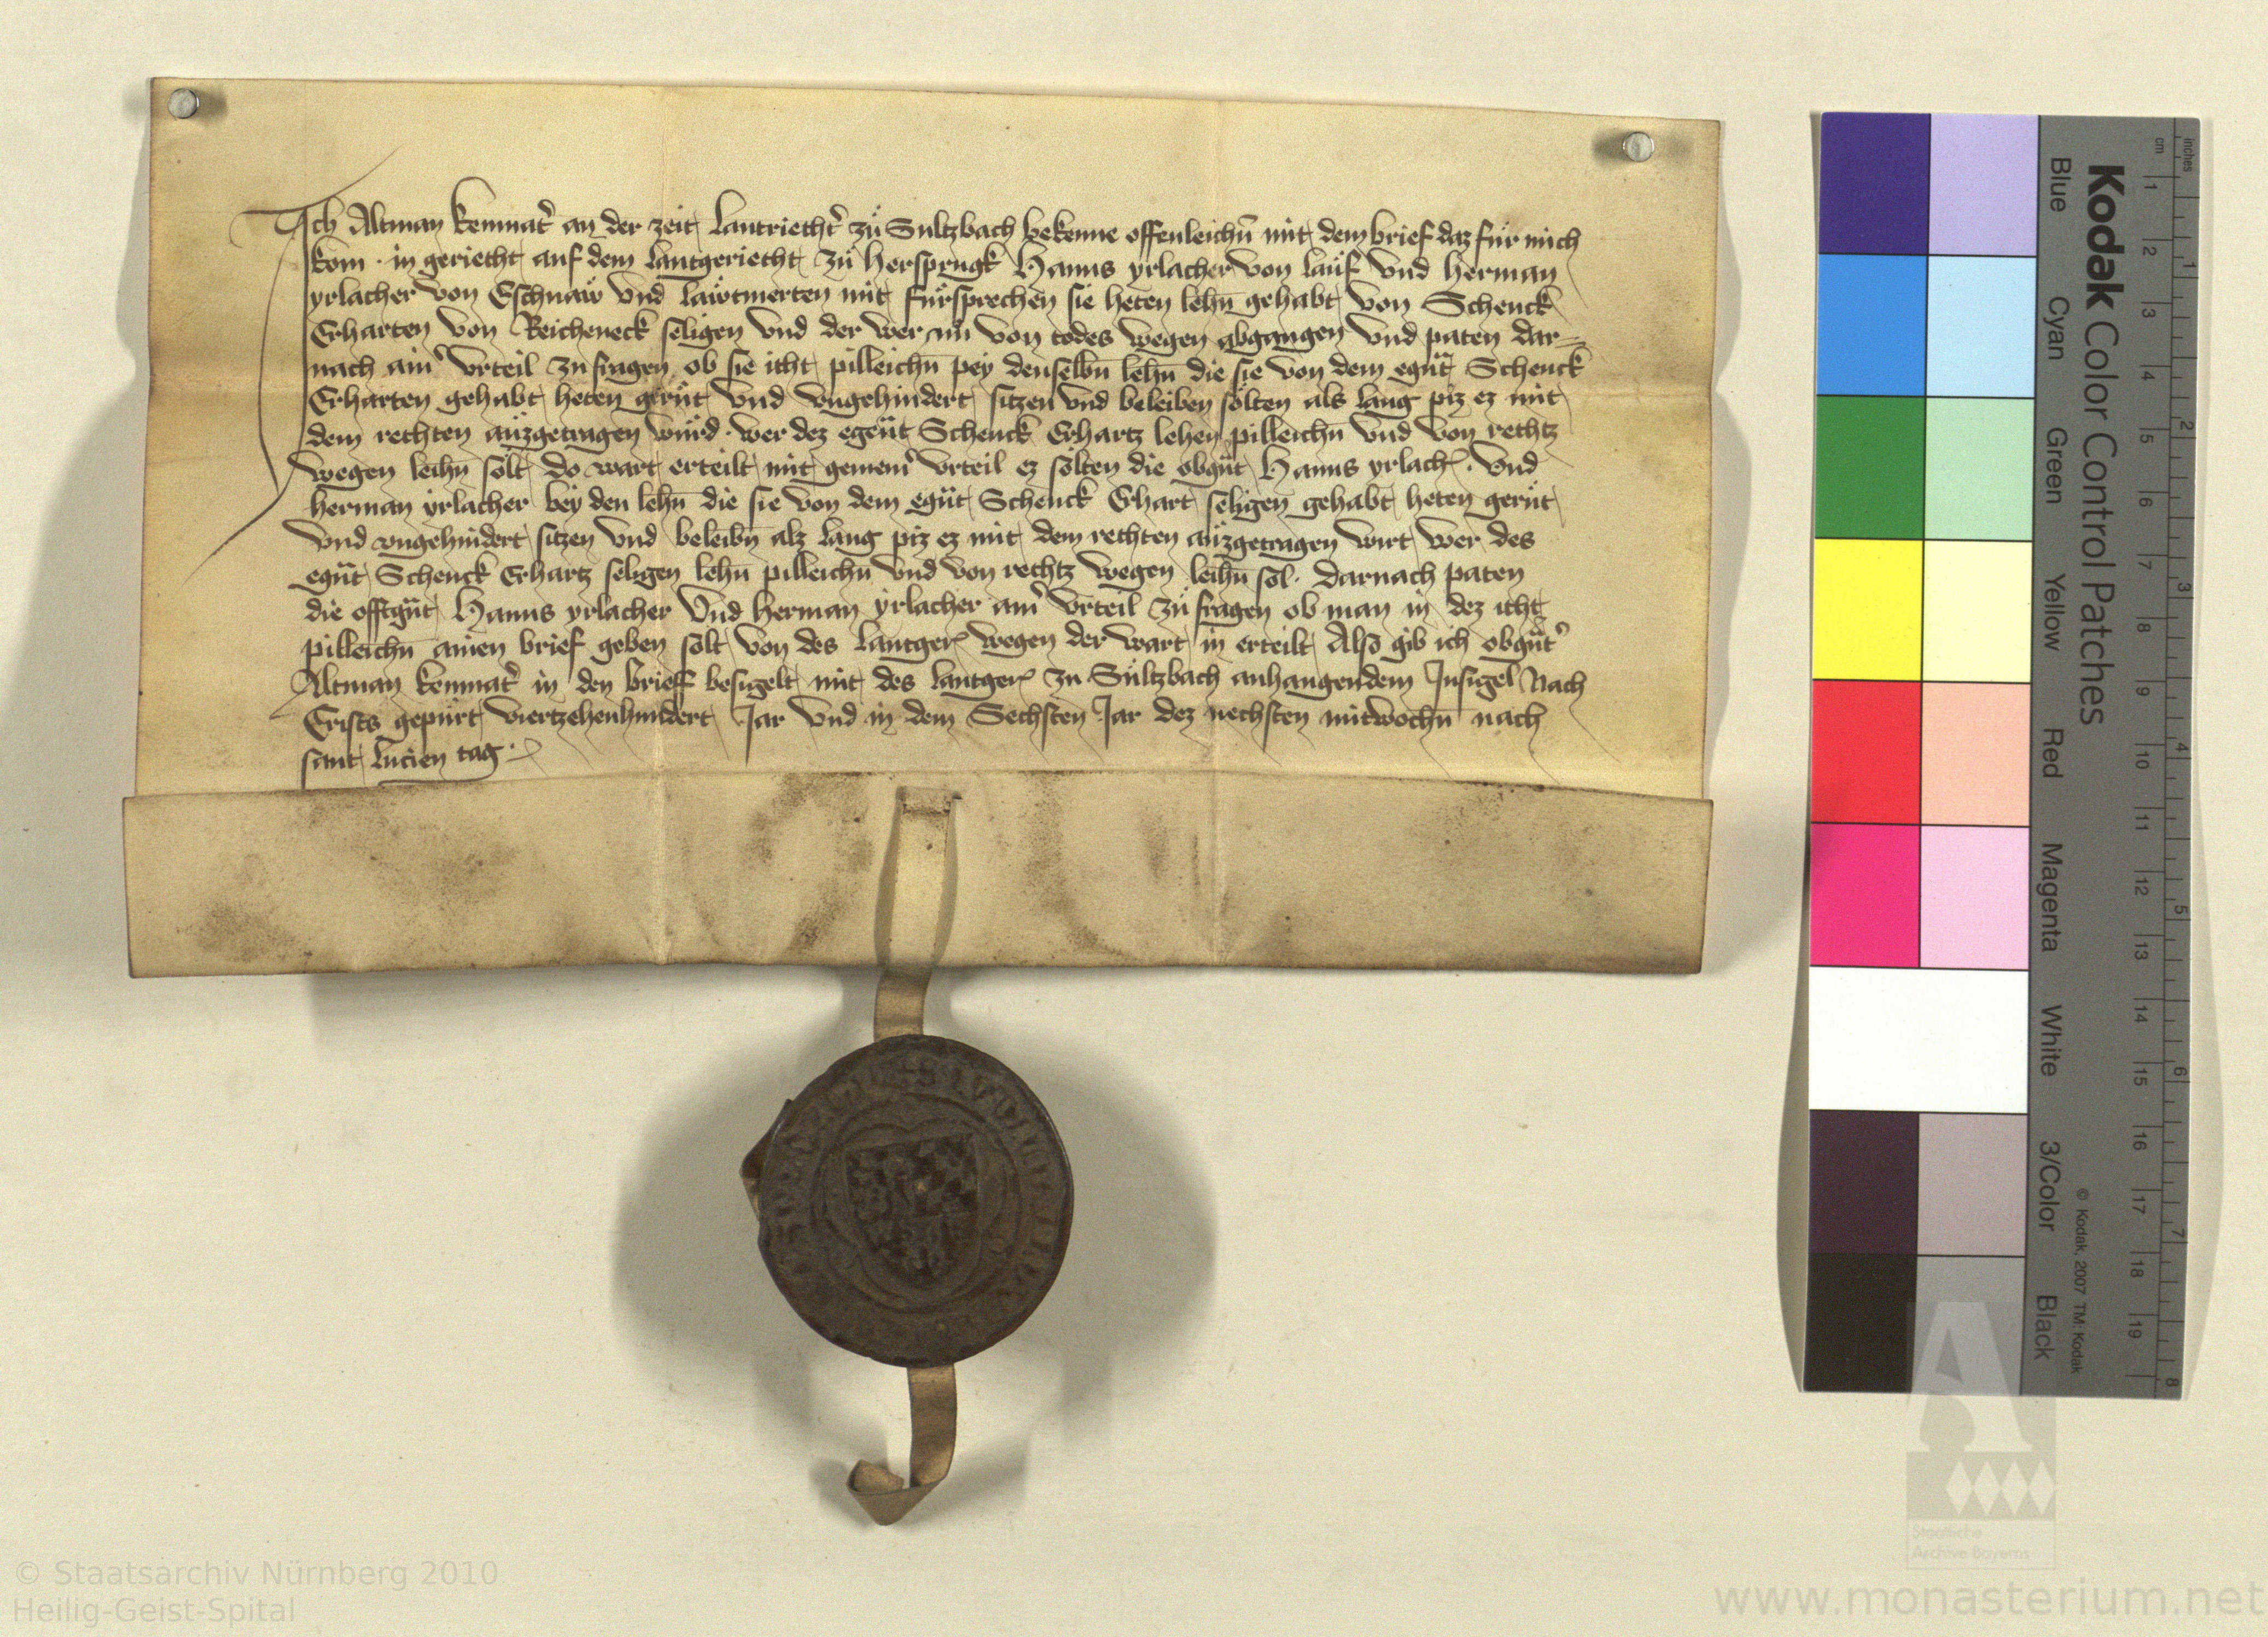 Ich Altman kemnat᾽ an der zeit Lantriecht᾽ zů Sultzbach bekenne offenleichn̄ mit dem brief daz fůr mich
kom · in geriecht auf dem lantgeriecht zů hersprugk Hanns yrlacher von lauf vnd herman
yrlacher von Eschnaẅ vnd laẅtmerten mit fůrsprechen sie heten lehn̄ gehabt von Schenck
Erharten von Reicheneck seligen vnd der wer nů von todes wegen abgangen vnd paten dar=
nach ain᾽ vrteil zu fragen ob sie icht pilleichn̄ pey denselbn̄ lehn̄ die sie von dem egn̄t Schenck
Erharten gehabt heten gerůt vnd vngehindert sitzen vnd beleiben sölten als lang piz ez mit
dem rechten auzgetragen würd · wer dez egen̄t Schenck Erhartz lehen pilleichn̄ vnd von rechtz
wegen leihn̄ sölt do wart erteilt mit gemein᾽ vrteil ez sölten die obgn̄t Hanns yrlach᾽ · vnd
herman yrlacher bey den lehn̄ die sie von dem egn̄t Schenck Erhart seligen gehabt heten gerůt
vnd vngehindert sitzen vnd beleibn̄ alz lang piz ez mit dem rechten auzgetragen wirt wer des
egn̄t Schenck Erhartz seligen lehn̄ pilleichn̄ vnd von rechtz wegen leihn̄ söl · darnach paten
die offtgn̄t Hanns yrlacher vnd herman yrlacher ain᾽ vrteil zů fragen ob man in dez icht
pilleichn̄ ainen brief geben solt von des lantger᾽ wegen der wart in erteilt Also gib ich obgn̄t᾽
Altman kemnat᾽ in den brieff besigelt mit des lantger᾽ zu Sultzbach anhangendem Insigel Nach
Crists gepürt viertzehenhundert Jar vnd in dem Sechsten Jar dez nechsten mitwochn̄ nach
sant lucien tag ·
Kodak Color Control Patches
Blue Cyan Green Yellow Red Magenta White 3/Color Black
© Kodak, 2007 TM: Kodak
inches 1 2 3 4 5 6 7 8
cm 1 2 3 4 5 6 7 8 9 10 11 12 13 14 15 16 17 18 19
Staatliche
Archive Bayerns
© Staatsarchiv Nürnberg 2010
Heilig-Geist-Spital
www.monasterium.net